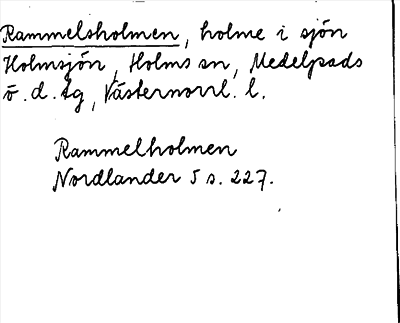 Rammelsholmen, holme i sjön
Holmsjön, Holms sn, Medelpads
v. d. tg, Västernorrl. l.
Rammelholmen
Nordlander 5 s. 227.